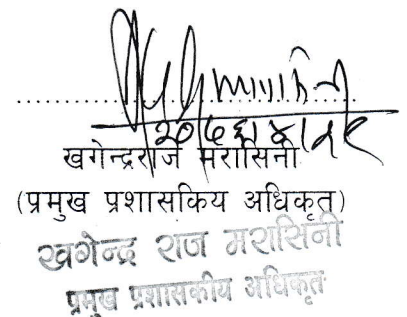 खगेन्द्रराज मरासिनी
(प्रमुख प्रशासकिय अधिकृत)
खगेन्द्र राज मरासिनी
प्रमुख प्रशासकीय अधिकृत